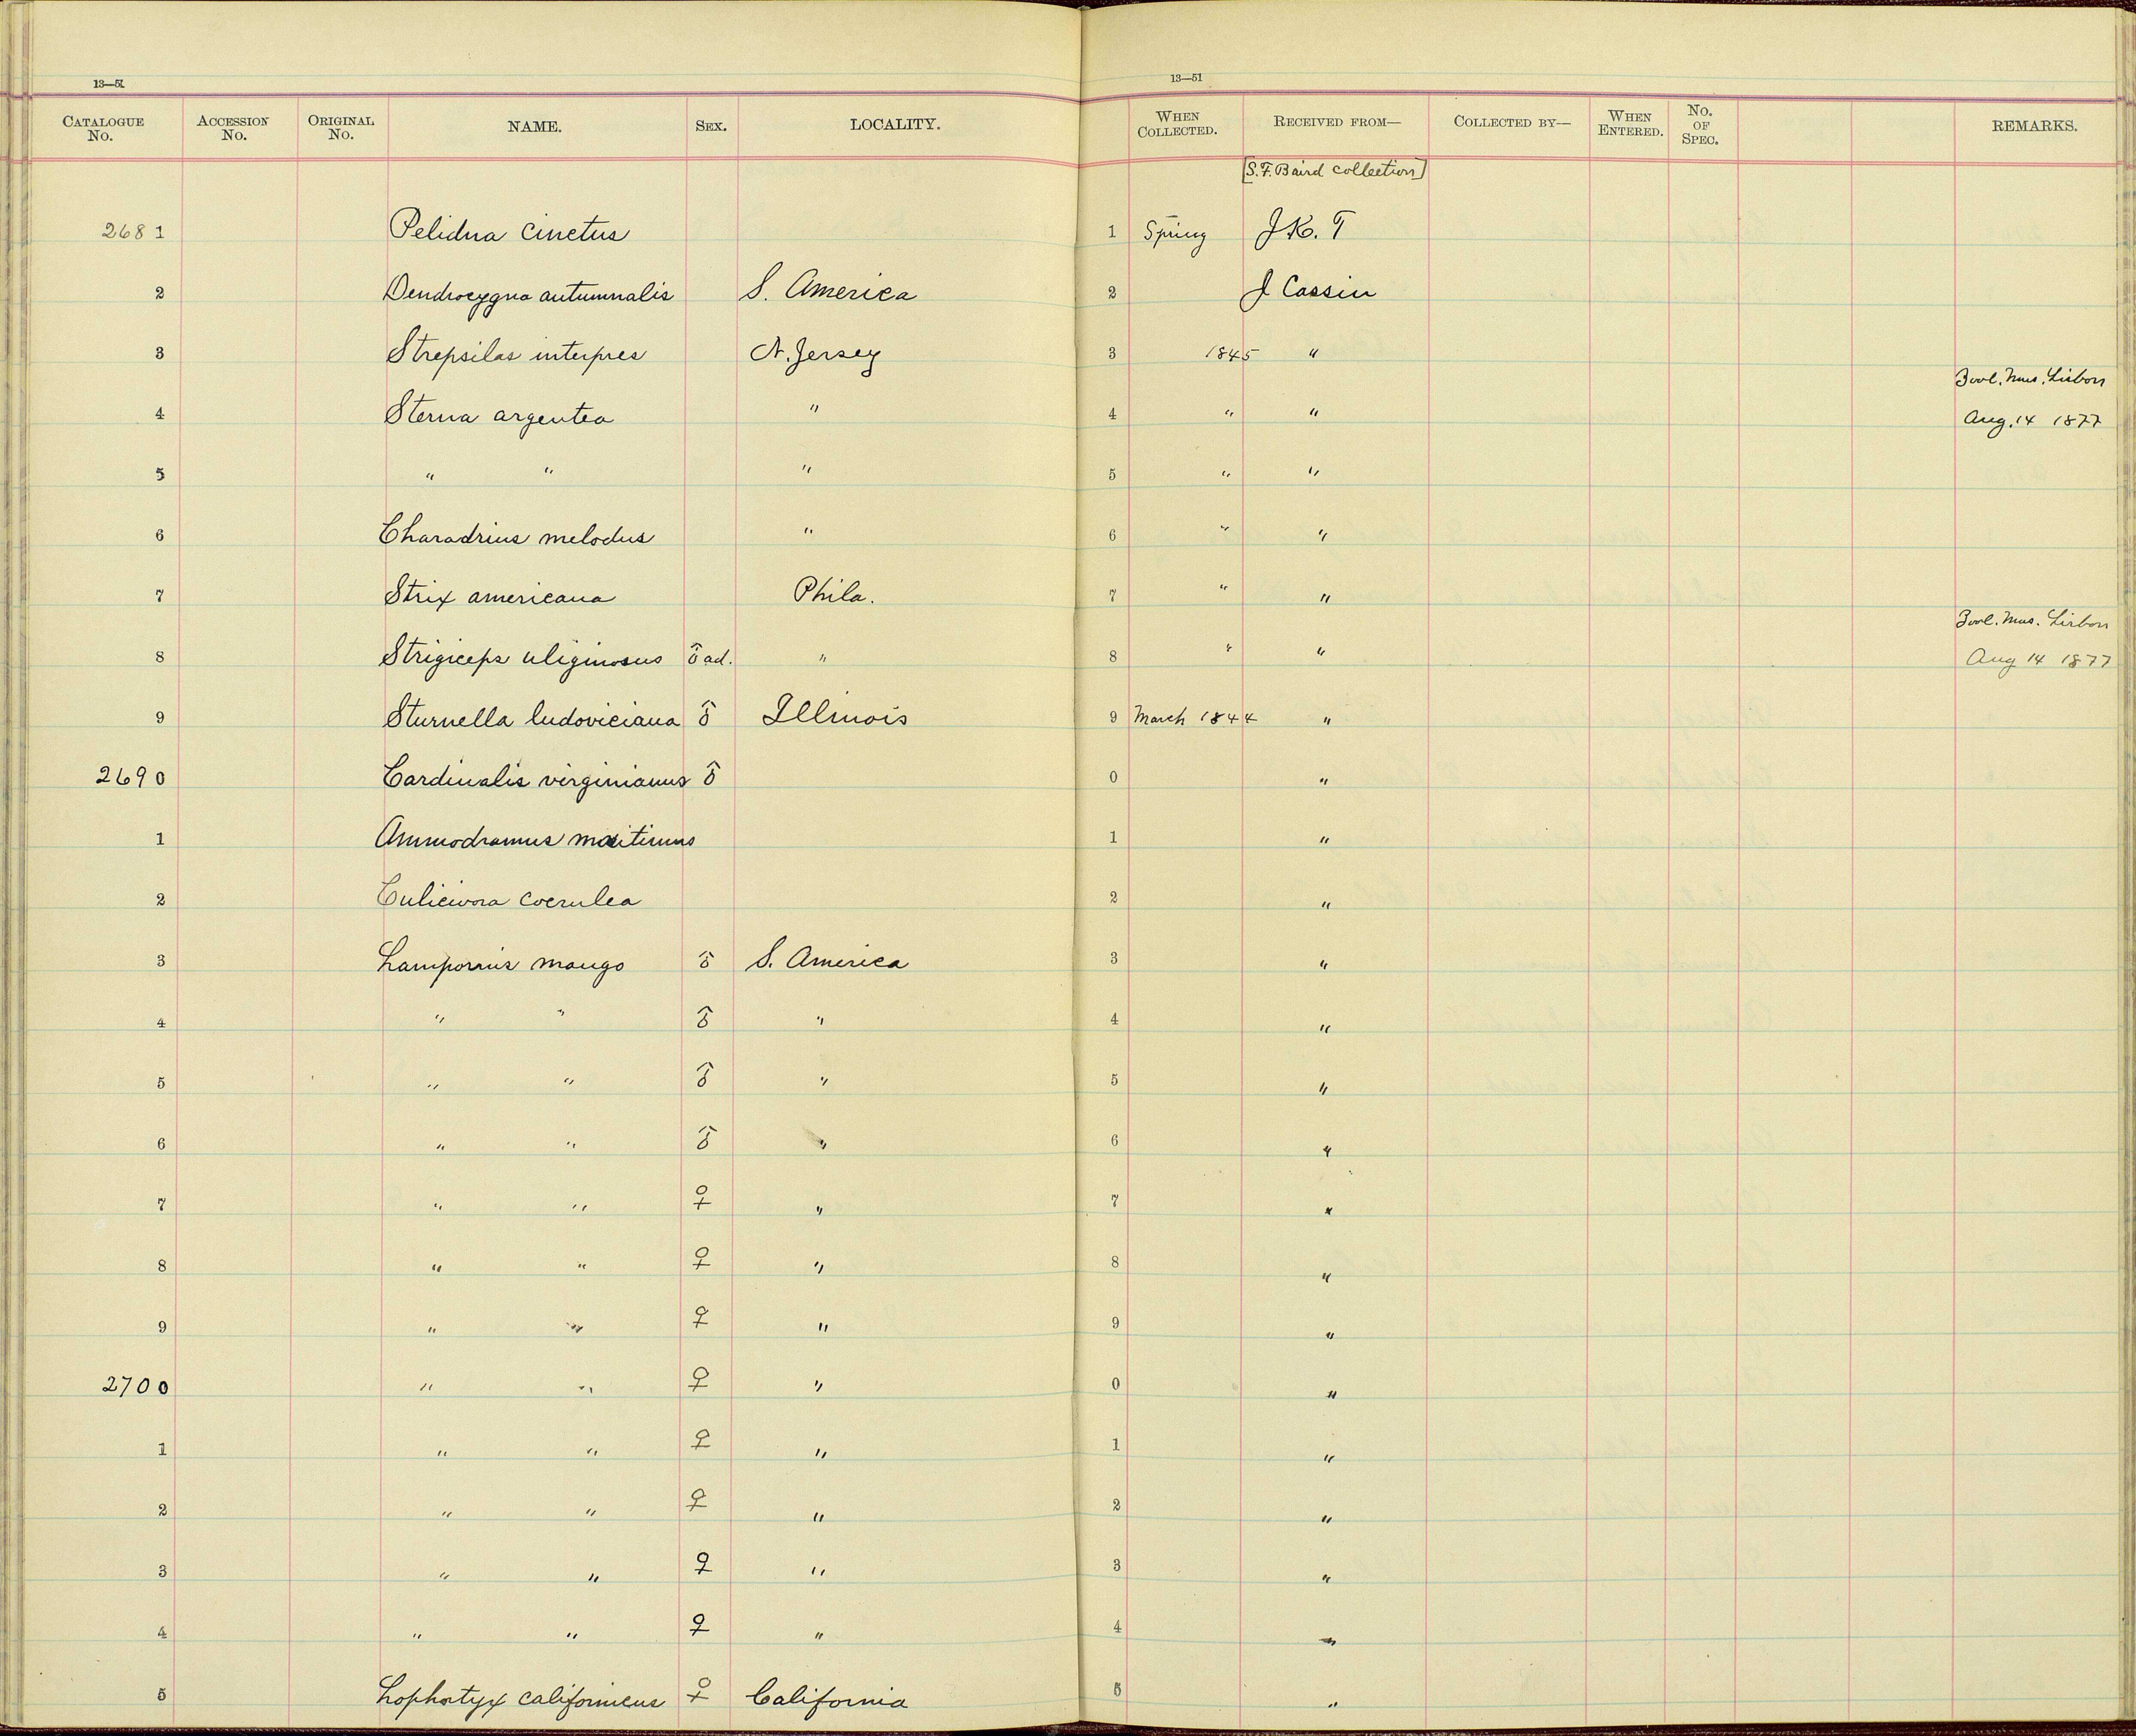 13—51 13—51
CATALOGUE No. ACCESSION No. ORIGINAL No. NAME. SEX. LOCALITY. WHEN COLLECTED. RECEIVED FROM— COLLECTED BY— WHEN ENTERED. No. OF SPEC. REMARKS.
[S. F. Baird collection]
2681 Pelidna cinctus 1 Spring J. K. T
2 Dendrocygna autumnalis S. America 2 J Cassin
3 Strepsilas interpres N. Jersey 3 1845 "
Zool. Mus. Lisbon
4 Sterna argentea " 4 " " Aug. 14 1877
5 " " " 5 " "
6 Charadrius melodus " 6 " "
7 Strix americana Phila. 7 " "
Zool. Mus. Lisbon
8 Strigiceps uliginosus ♂ ad. " 8 " " Aug 14 1877
9 Sturnella ludoviciana ♂ Illinois 9 March 1844 "
2690 Cardinalis virginianus ♂ 0 "
1 Ammodramus maritimus 1 "
2 Culicivora coerulea 2 "
3 Lampornis mango ♂ S. America 3 "
4 " " ♂ " 4 "
5 " " ♂ " 5 "
6 " " ♂ " 6 "
7 " " ♀ " 7 "
8 " " ♀ " 8 "
9 " " ♀ " 9 "
2700 " " ♀ " 0 "
1 " " ♀ " 1 "
2 " " ♀ " 2 "
3 " " ♀ " 3 "
4 " " ♀ " 4 "
5 Lophortyx californicus ♀ California 5 "